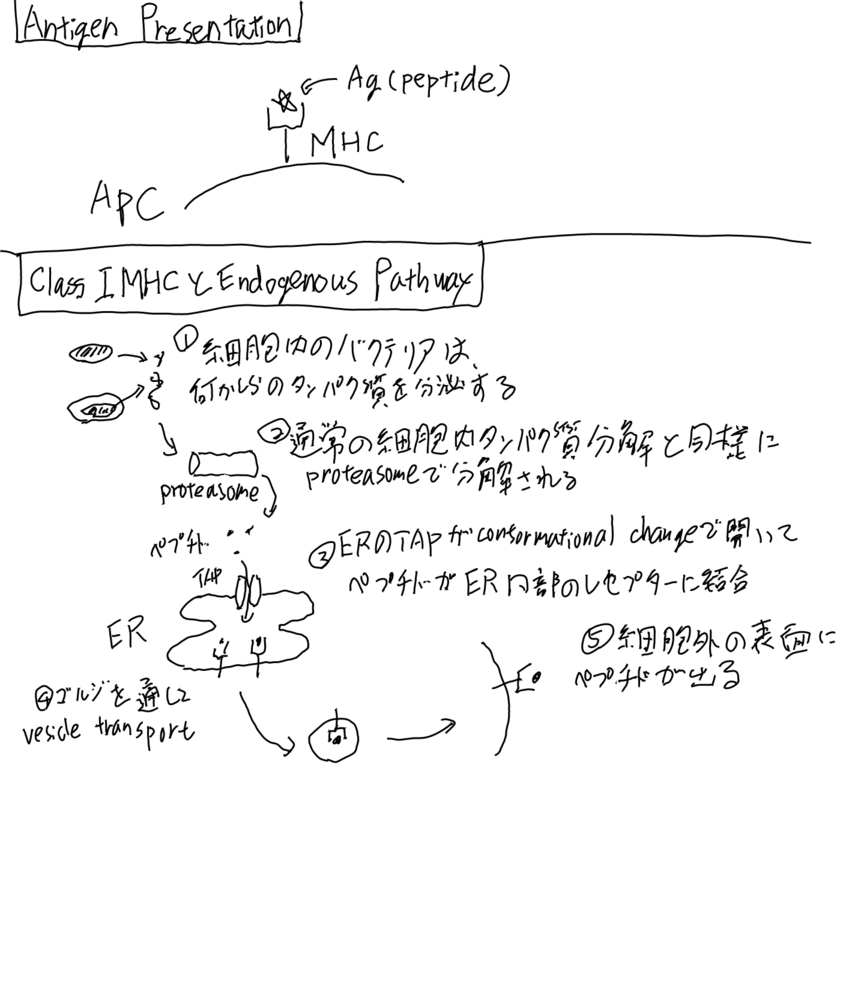 Antigen Presentation
Ag(peptide)
MHC
APC
Class I MHCとEndogenous Pathway
①細胞内のバクテリアは、
何かしらのタンパク質を分泌する
②通常の細胞内タンパク質分解と同様に
proteasomeで分解される
proteasome
ペプチド
③ERのTAPがconformational changeで開いて
ペプチドがER内部のレセプターに結合
TAP
ER
④ゴルジを通して
vesicle transport
⑤細胞外の表面に
ペプチドが出る